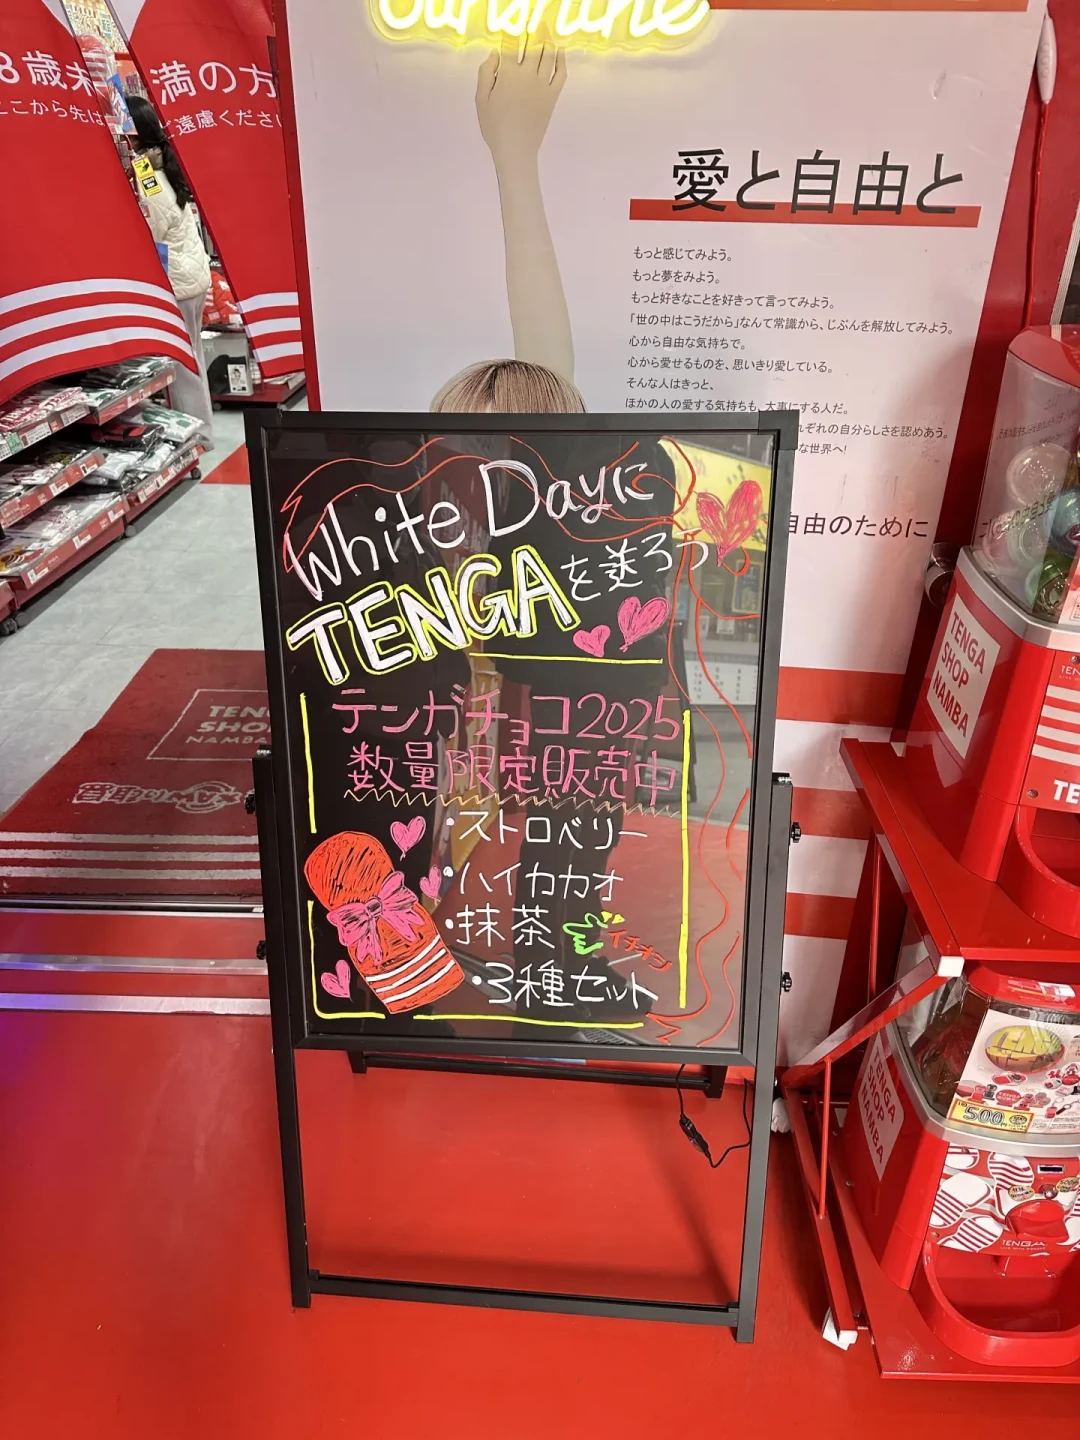 Sunshine
8歳未満の方
ここから先はご遠慮くださ
愛と自由と
もっと感じてみよう。
もっと夢をみよう。
もっと好きなことを好きって言ってみよう。
「世の中はこうだから」なんて常識から、じぶんを解放してみよう。
心から自由な気持ちで。
心から愛せるものを、思いきり愛している。
そんな人はきっと、
ほかの人の愛する気持ちも、大事にする人だ。
れぞれの自分らしさを認めあう。
な世界へ!
自由のために
White Dayに
TENGAを送ろう
テンガチョコ2025
数量限定販売中
・ストロベリー
・ハイカカオ
・抹茶 イチオシ
・3種セット
TENGA
SHOP
NAMBA
TEN
SHO
NAMBA
TE
TENGA
SHOP
NAMBA
TENGA
500
TENGA